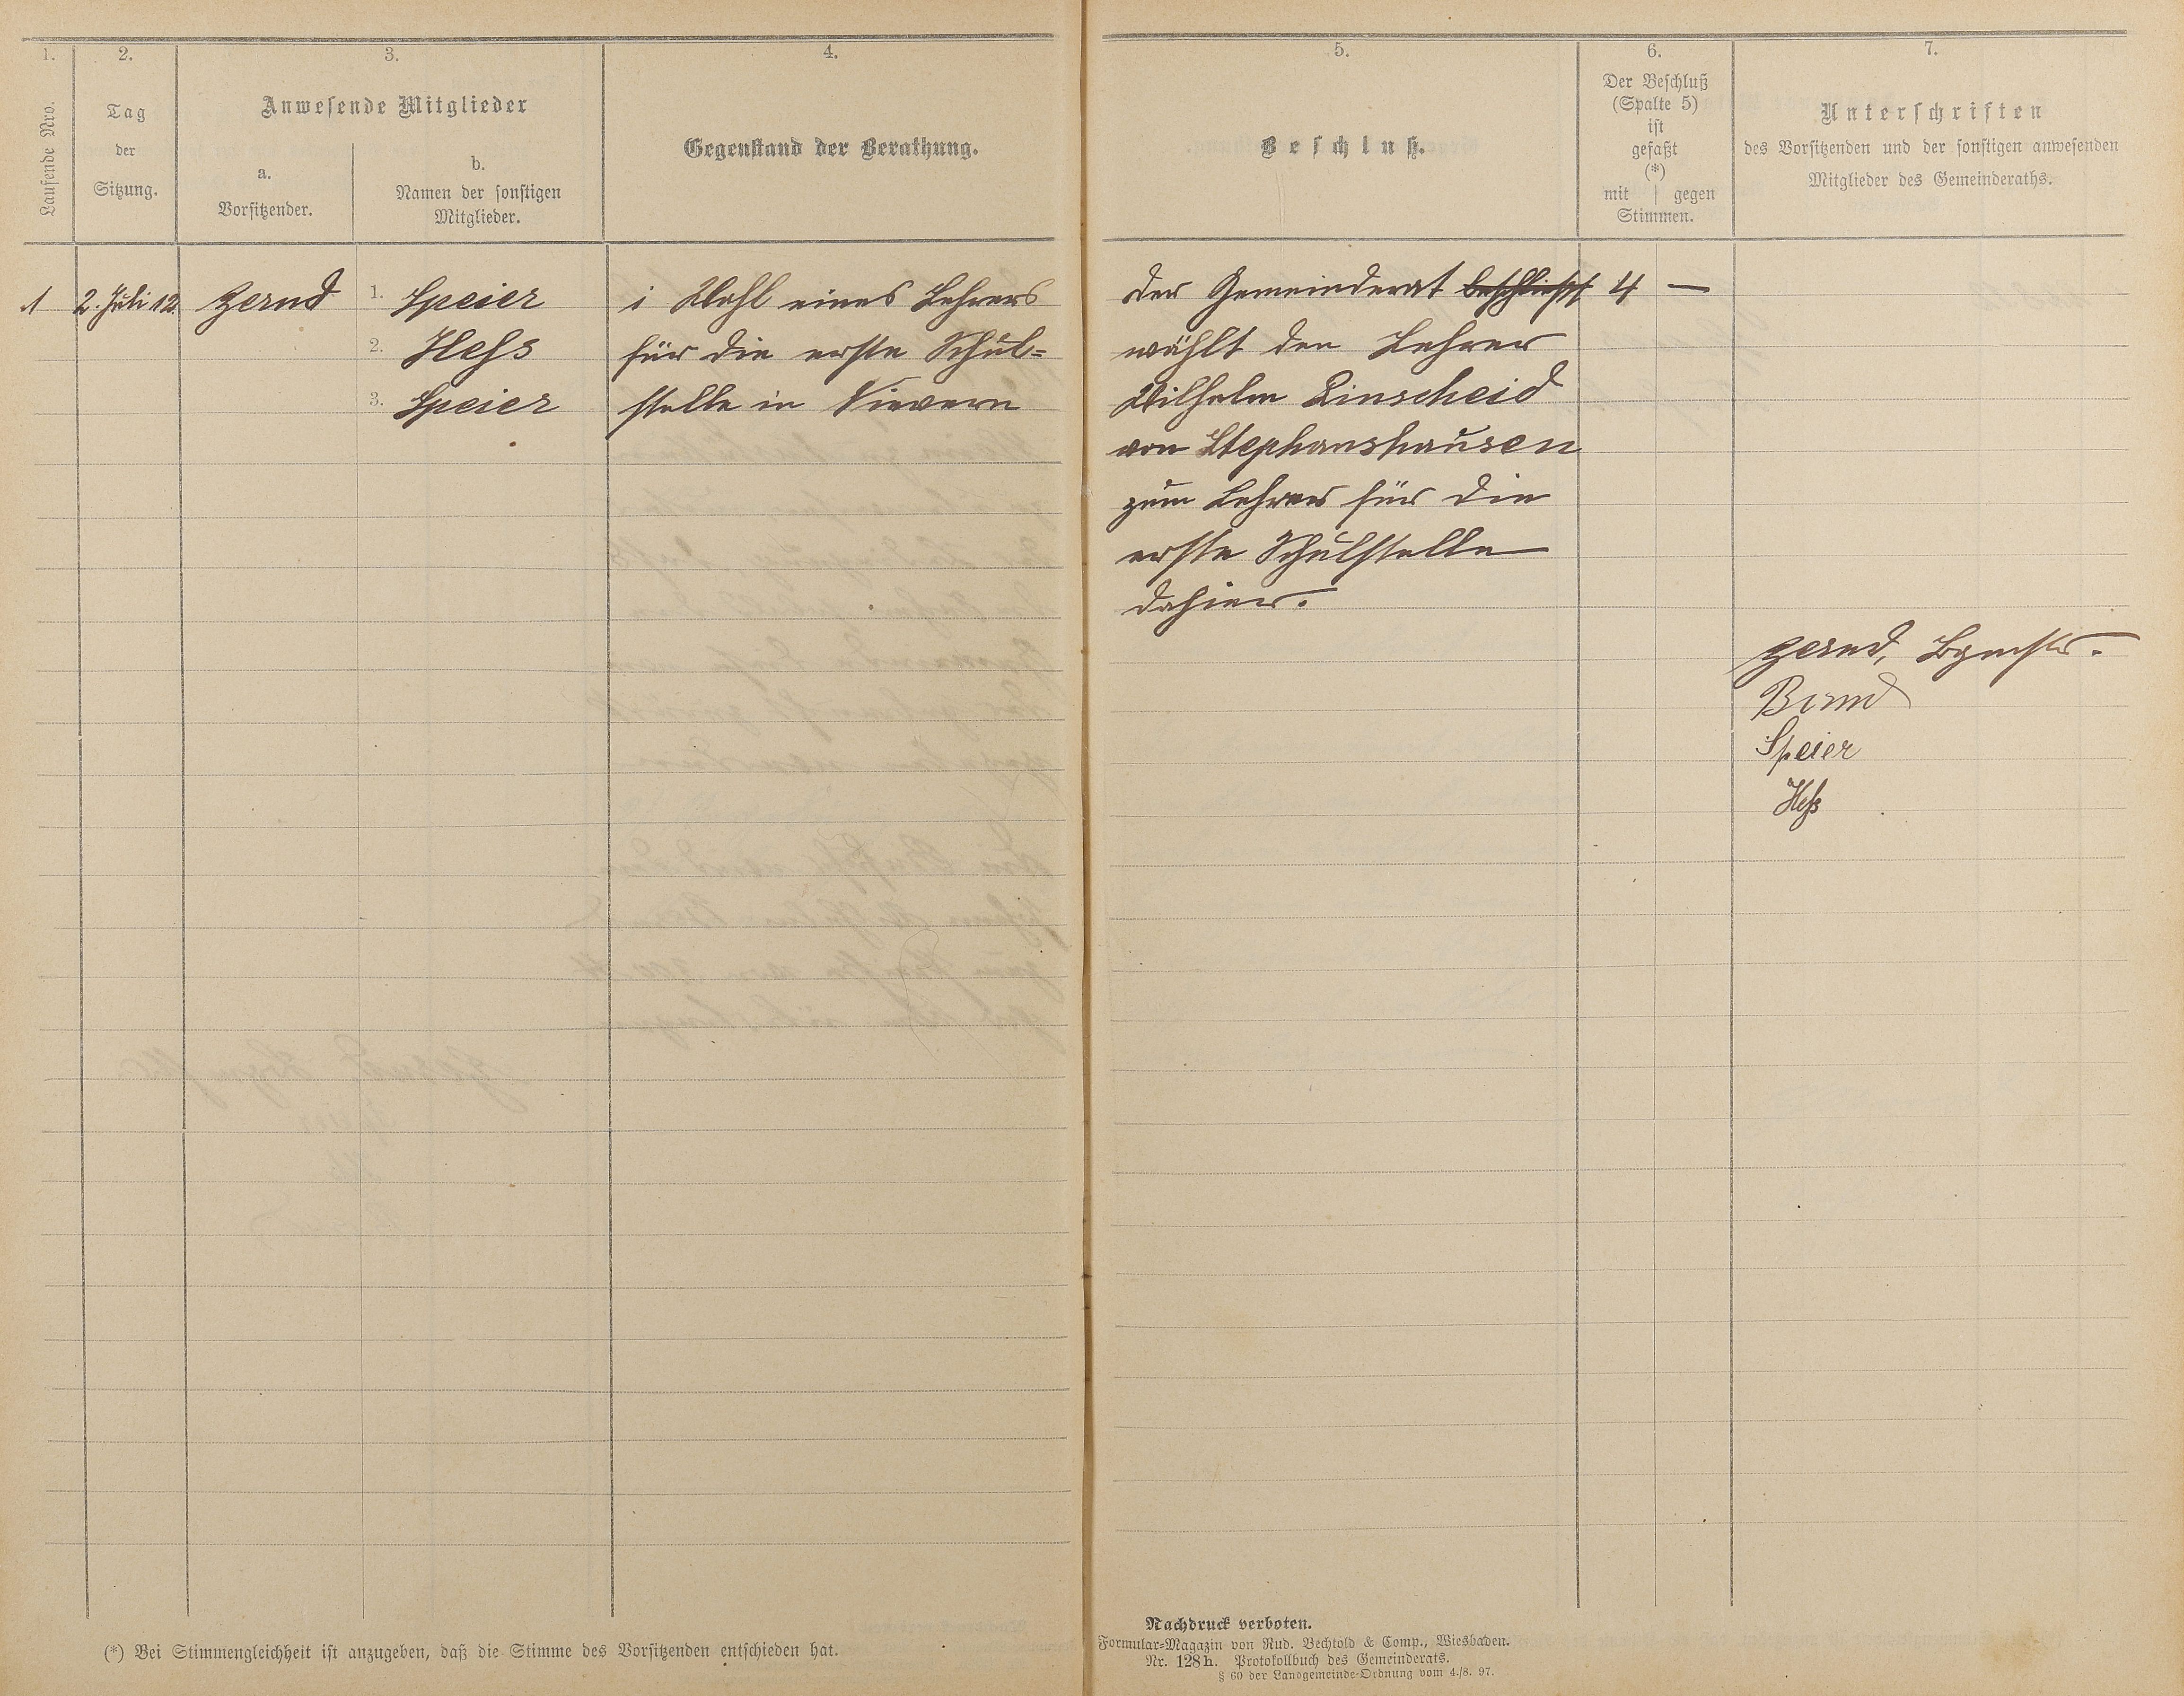 1.
Laufende Nro.
2.
Tag
der
Sitzung.
3.
Anwesende Mitglieder
a.
Vorsitzender.
b.
Namen der sonstigen
Mitglieder.
4.
Gegenstand der Berathung.
1
2. Juli 12.
Zernd
1. Speier
2. Heß
3. Speier
1 Wahl eines Lehrers
für die erste Schul=
stelle in Nievern
(*) Bei Stimmengleichheit ist anzugeben, daß die Stimme des Vorsitzenden entschieden hat.
5.
Beschluß.
6.
Der Beschluß
(Spalte 5)
ist
gefaßt
(*)
mit | gegen
Stimmen.
7.
Unterschriften
des Vorsitzenden und der sonstigen anwesenden
Mitglieder des Gemeinderaths.
Der Gemeinderat beschließt
4 —
wählt den Lehrer
Wilhelm Linscheid
von Stephanshausen
zum Lehrer für die
erste Schulstelle
dahier.
Zernd, Bgmstr.
Speier
Heß
Nachdruck verboten.
Formular=Magazin von Rud. Bechtold & Comp., Wiesbaden.
Nr. 128 h. Protokollbuch des Gemeinderats.
§ 60 der Landgemeinde=Ordnung vom 4./8. 97.